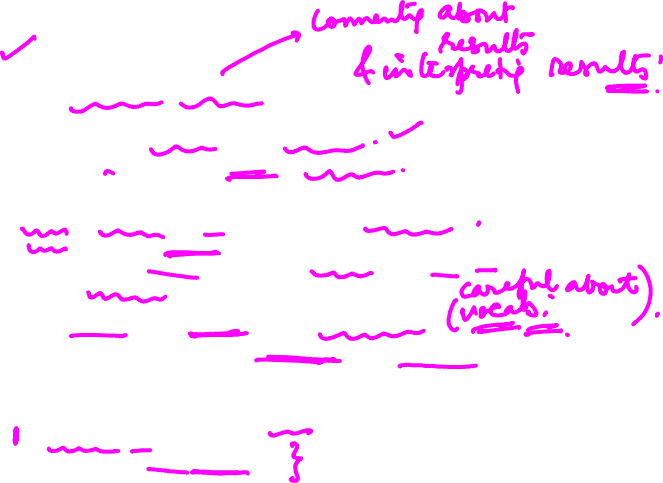 commenting about
results
& interpreting results.
(careful about
vocab.).